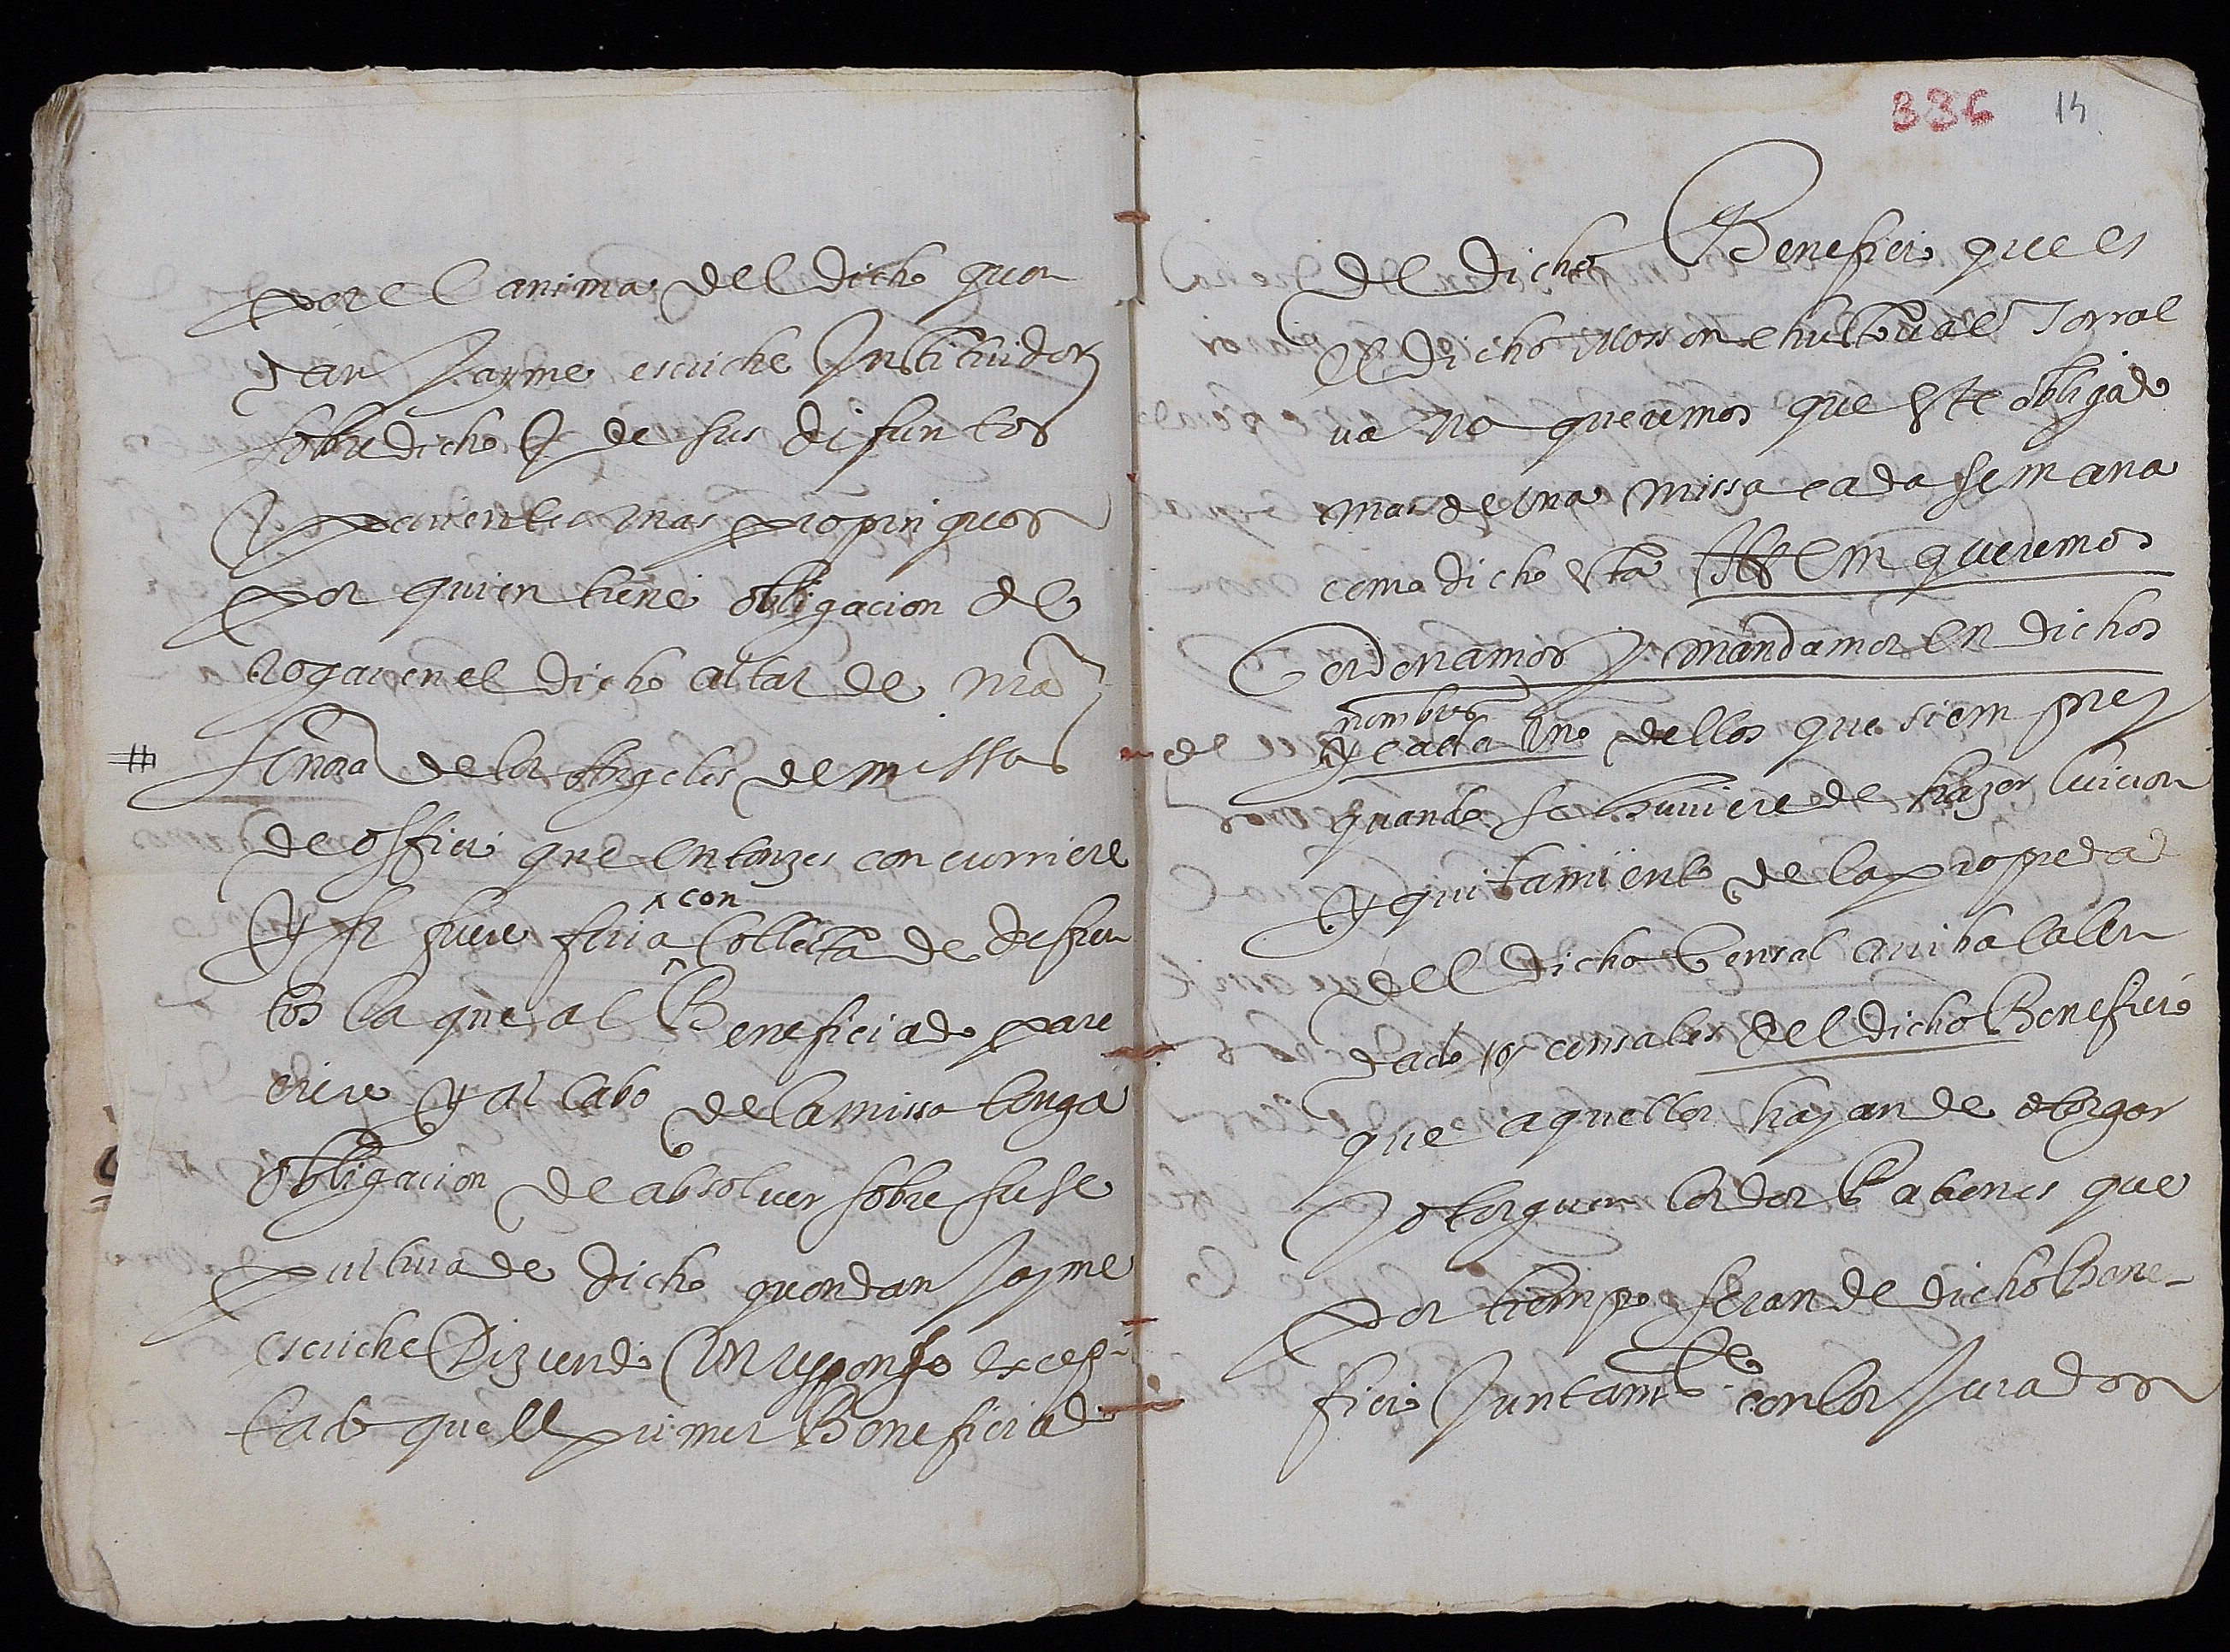 por el anima del dicho quon
dan Jayme escriche Instituidor
sobredicho y de sus difuntos
y parientes mas propinquos
por quien tiene obligacion de
rogar en el dicho altar de nra
señora de los Angeles de missa
de officio que entonzes concurriere
^ con
y si fuere feria Collecta de defun
tos la que al Beneficiado pare
ciere y al cabo de la missa tenga
obligacion de absolver sobre su se
pultura de dicho quondan Jayme
escriche Diziendo Un responso excep
tado que el primer Beneficiado
336 14
del dicho Beneficio que es
el dicho Mossen Torral
va no queremos que este obligado
mas de una missa cada semana
como dicho esta Item queremos
ordenamos y mandamos en dichos
nombres
y cada Uno dellos que siempre
quando se huviere de hazer luicion
y quitamiento de la propieda
del dicho Censal arriba calen
dado y censales del dicho Beneficio
que aquellos hayan de otorgar
y otorguen los dos Patrones que
por tiempo seran de dicho Bene-
ficio Juntamte con los Jurados